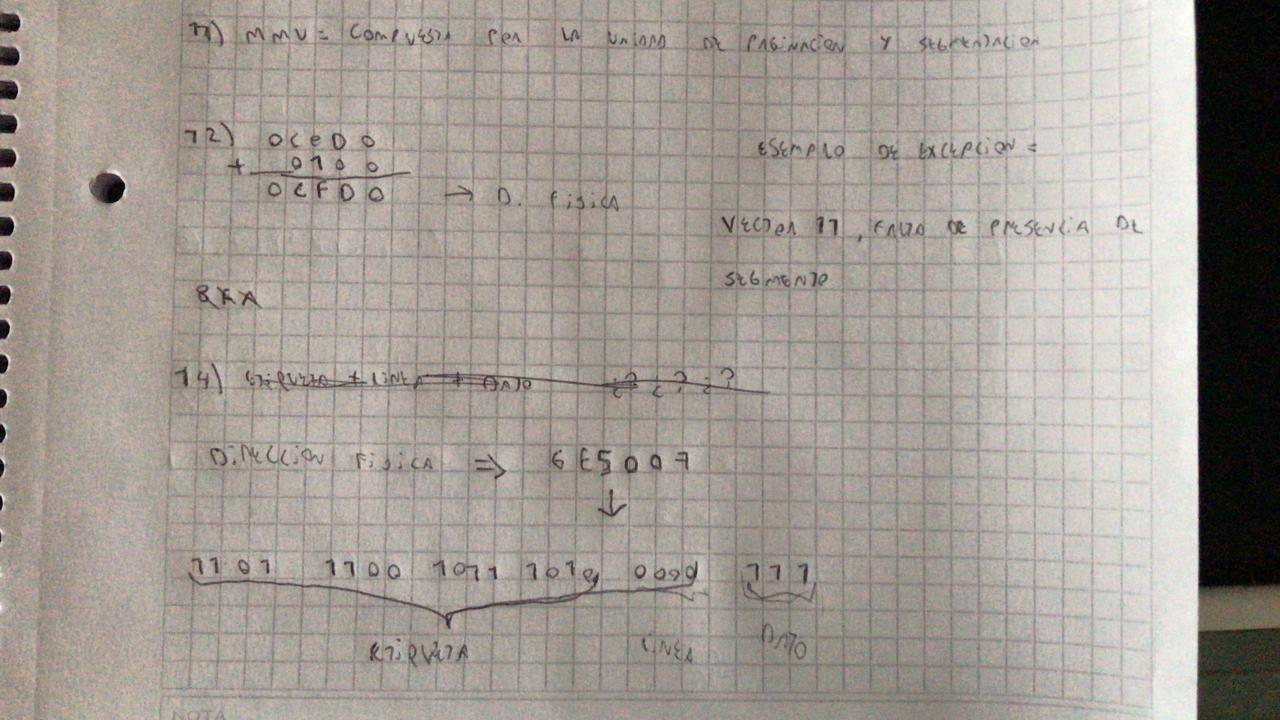 11) MMU = COMPUESTA POR LA UNIDAD DE PAGINACION Y SEGMENTACION
12) 0CED0
+ 0100
0CFD0 → D. FISICA
EJEMPLO DE EXCEPCION =
VECTOR 11, FALTA DE PRESENCIA DE
SEGMENTO
14) ETIQUETA + LINEA + DATO ¿? ¿? ¿?
DIRECCION FISICA ⇒ 6E5007
↓
1101 1100 1011 1010 0000 111
ETIQUETA LINEA DATO
NOTA